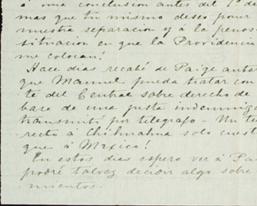 á una conclusion antes del 1º de
mas que tu mismo deseo pour
nuestra separacion y á la penos
situacion en que la Providencia
me colocan!
Hace dias recabé de Paige autor
que Manuel pueda tratar con
te del Central sobre derecho de
base de una justa indemniza
transmití por telegrafo - Un te
recto á Chihuahua solo cuest
que á Mexico!
En estos dias espero ver á Pai
podré talvez decidir algo sobre
mientos.